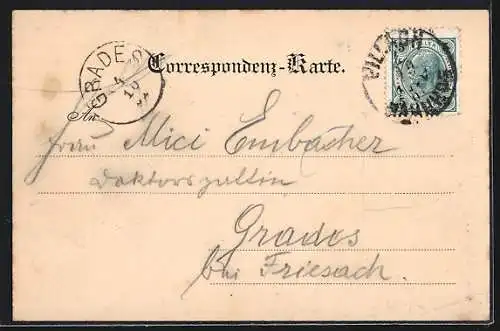 GRADES
4
10
VILLACH
BAHNHOF
Correspondenz-Karte.
An
Frau Mici Embacher
Doktorsgattin
Grades
bei Friesach.